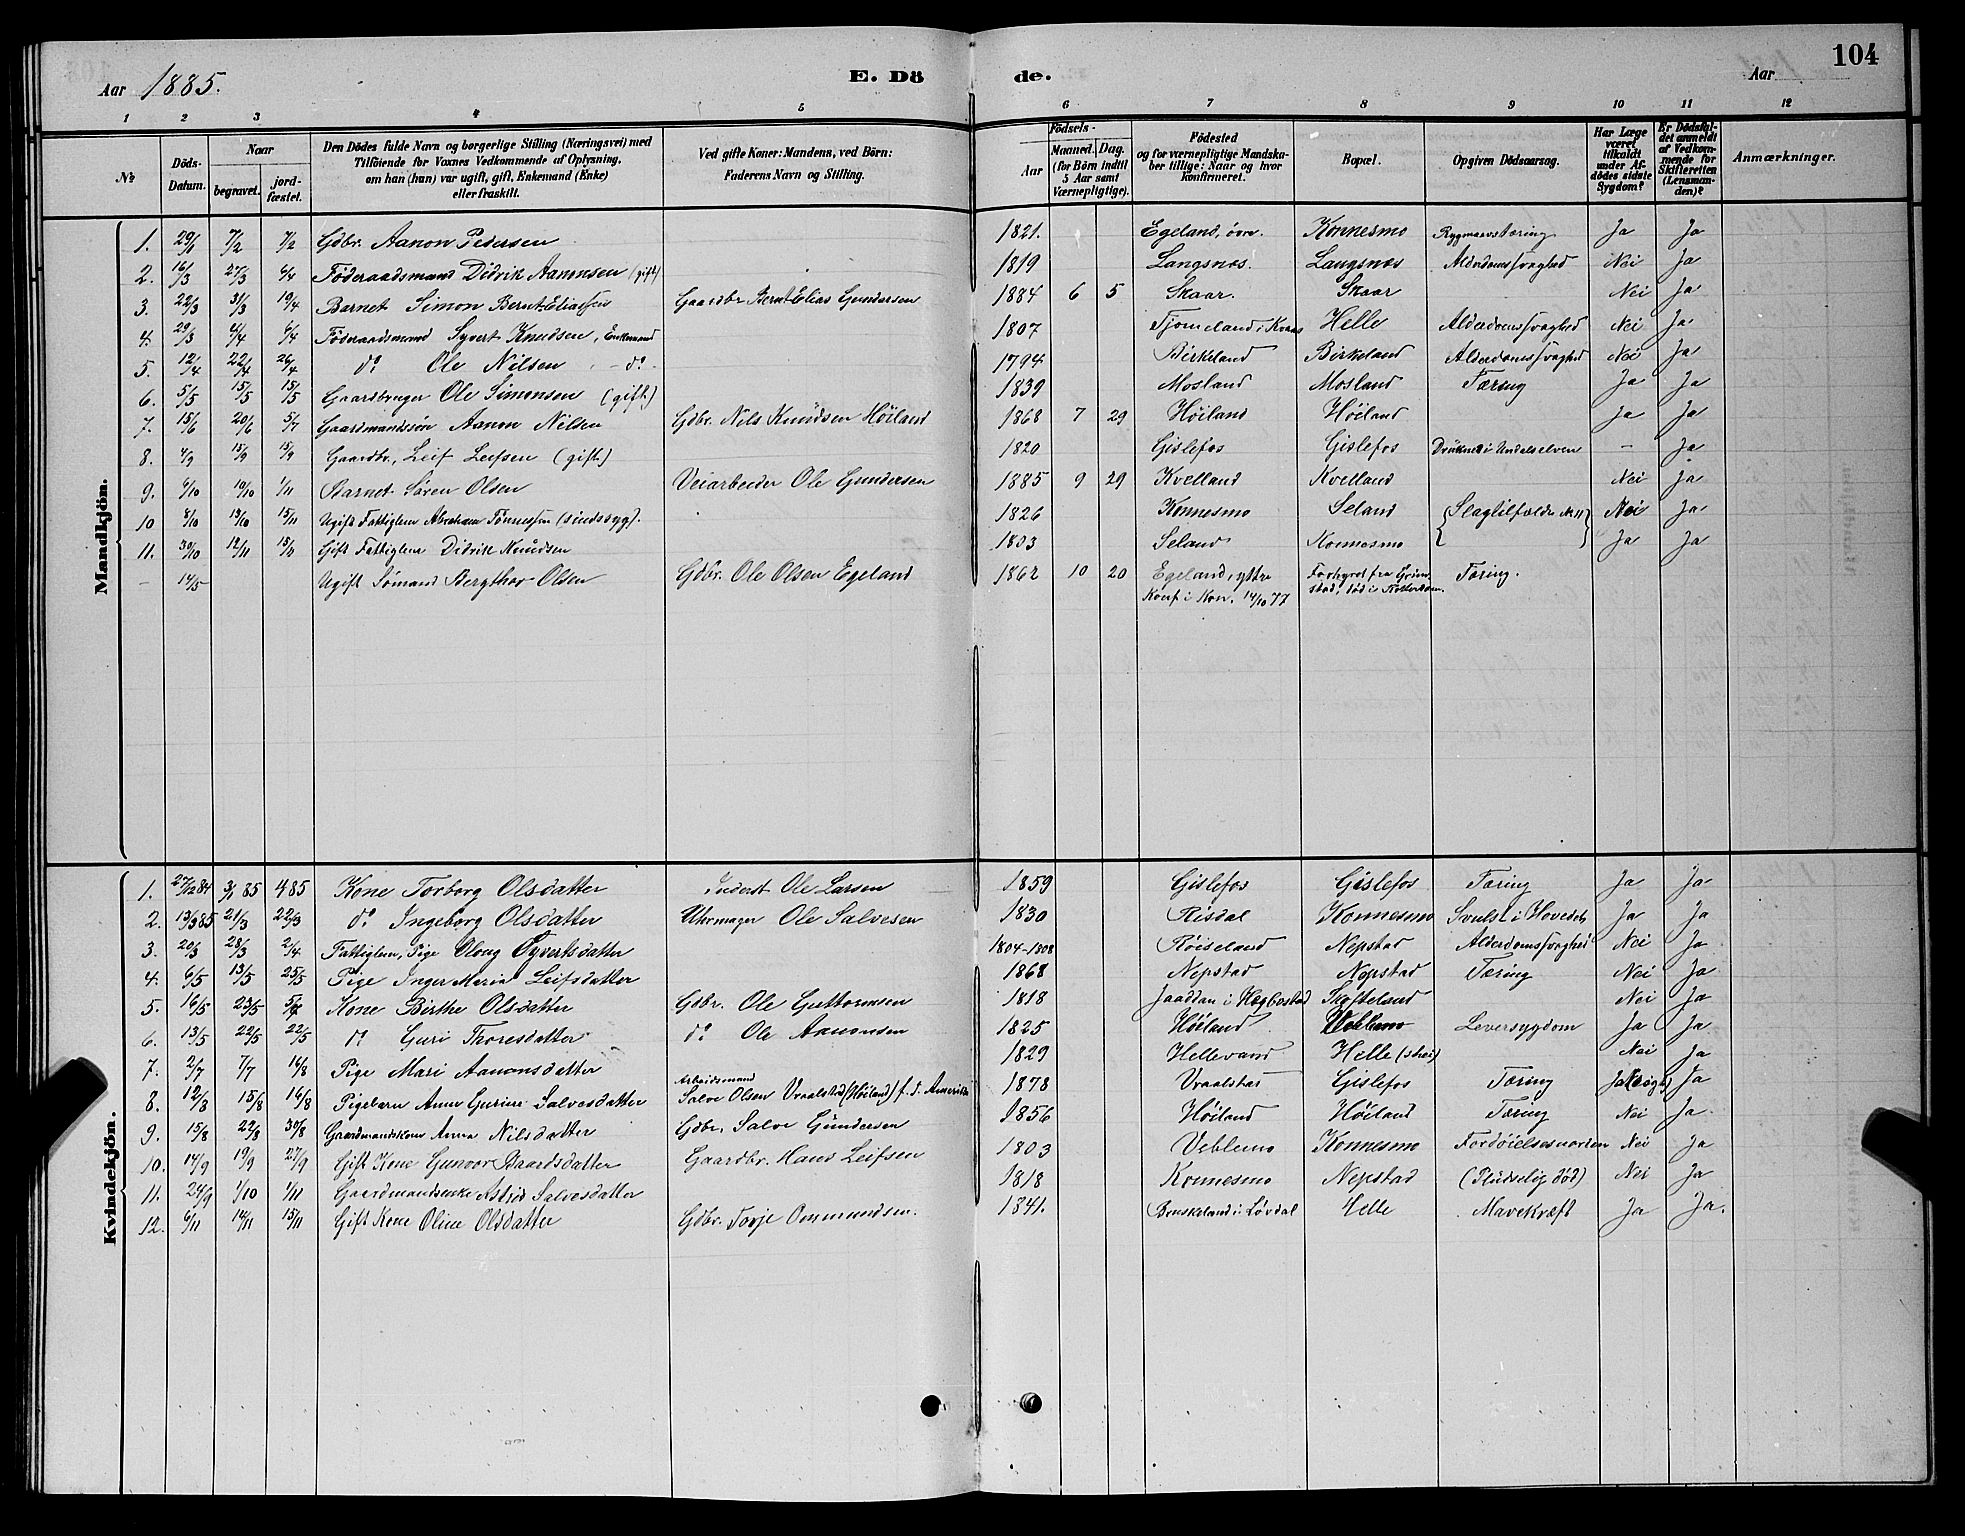 Aar 1885. E. Dö de. Aar 104
1 2 3 4 5 6 7 8 9 10 11 12
No Döds-Datum. Naar begravet. jordfæstet. Den Dödes fulde Navn og borgerlige Stilling (Næringsvei) med Tilföiende for Voxnes Vedkommende af Oplysning, om han (hun) var ugift, gift, Enkemand (Enke) eller fraskilt. Ved gifte Koner: Mandens, ved Börn: Faderens Navn og Stilling. Födsels- Aar Maaned. Dag. (for Börn indtil 5 Aar samt Værnepligtige). Födested og for værnepligtige Mandskaber tillige: Naar og hvor konfirmeret. Bopæl. Opgiven Dödsaarsag. Har Læge været tilkaldt under Afdödes sidste Sygdom? Er Dödsfaldet anmeldt af Vedkommende for Skifteretten (Lensmanden)? Anmærkninger.
Mandkjön.
1. 29/1 7/2 7/2 Gdbr. Aanon Pedersen 1821. Egeland, övre. Konnesmo Rygmarvstæring Ja Ja
2. 16/3 27/3 6/4 Föderaadsmand Didrik Aanonsen (gift) 1819 Langsnæs. Langsnæs Alderdomssvaghed Nei Ja
3. 22/3 31/3 19/4 Barnet Simon Bernt Eliassen Gaardbr Bernt Elias Gundersen 1884 6 5 Skaar. Skaar Nei Ja
4. 29/3 6/4 Föderaadsmand Syvert Knudsen, Enkemand 1807 Tjomeland i Kvaas Helle Alderdomssvaghed Nei Ja
5. 12/4 22/4 26/4 do Ole Nilsen - do 1794 Birkeland Birkeland Alderdomssvaghed Nei Ja
6. 5/5 15/5 15/5 Gaardbruger Ole Simonsen (gift) 1839 Mosland Mosland Tæring Ja Ja
7. 15/6 20/6 5/7 Gaardmandssön Aanon Nilsen Gdbr. Nils Knudsen Höiland 1868 7 29 Höiland Höiland Ja Ja
8. 4/9 15/9 15/9 Gaardbr, Leif Leifsen (gift) 1820 Gislefos Gislefos Druknet i Undalselven - Ja
9. 6/10 19/10 1/11 Barnet Sören Olsen Veiarbeider Ole Gundersen 1885 9 29 Kvelland Kvelland Nei Ja
10 8/10 13/10 15/11 Ugift Fattiglem Abraham Tönnessen (sindssyg). 1826 Konnesmo Seland Slagtilfælde Nei Ja
11. 30/10 12/11 15/11 Gift Fattiglem Didrik Knudsen 1803 Seland Konnesmo Ja Ja
- 14/5 Ugift Sömand Bergthor Olsen Gdbr. Ole Olsen Egeland 1862 10 20 Egeland, yttre Forhyret fra Grim- Tæring.
Konf i Kon. 14/10 77 stad, död i Rotterdam.
Kvindekjön.
1. 27/12 84 3/1 85 Kone Torborg Olsdatter Inderst Ole Larsen 1859 Gislefos Gislefos Tæring Ja Ja
2. 13/3 85 21/3 22/3 do Ingeborg Olsdatter Uhrmager Ole Salvesen 1830 Risdal Konnesmo Svulst i Hovedet Ja Ja
3. 20/3 28/3 2/4 Fattiglem, Pige Oloug Syvertsdatter 1804-1808 Röiseland Nepstad Alderdomssvaghed Nei Ja
4. 6/5 13/5 25/5 Pige Inger Maria Leifsdatter 1868 Nepstad Nepstad Tæring Nei Ja
5. 16/5 23/5 Kone Birthe Olsdatter Gdbr. Ole Guttormsen 1818 Jaaddan i Hægbostad Skofteland Nei Ja
6. 13/5 22/5 22/5 do Guri Thoresdatter do Ole Aanonsen 1825 Höiland Veblemo Leversygdom Ja Ja
7. 2/7 7/7 16/8 Pige Mari Aanonsdatter 1829 Hellevand Helle Nei Ja
Arbeidsmand
8. 12/8 15/8 16/8 Pigebarn Anne Gurine Salvesdatter Salve Olsen Vraalstad (Höiland) f. t. Amerika 1878 Vraalstad Gislefos Tæring Ja
9. 15/8 22/8 30/8 Gaardmandskone Anna Nilsdatter Gdbr. Salve Gundersen 1856 Höiland Höiland Tæring Nei Ja.
10. 14/9 19/9 27/9 Gift Kone Gunvor Baardsdatter Gaardbr. Hans Leifsen 1803 Veblemo Konnesmo Nei Ja
11. 24/9 1/10 1/11 Gaardmandsenke Astrid Salvesdatter 1818 Konnesmo Nepstad (Pludselig död) Nei Ja
12. 6/11 14/11 15/11 Gift Kone Oline Olsdatter Gdbr. Torje Ommundsen. 1841. Helle Mavekræft Ja Ja.